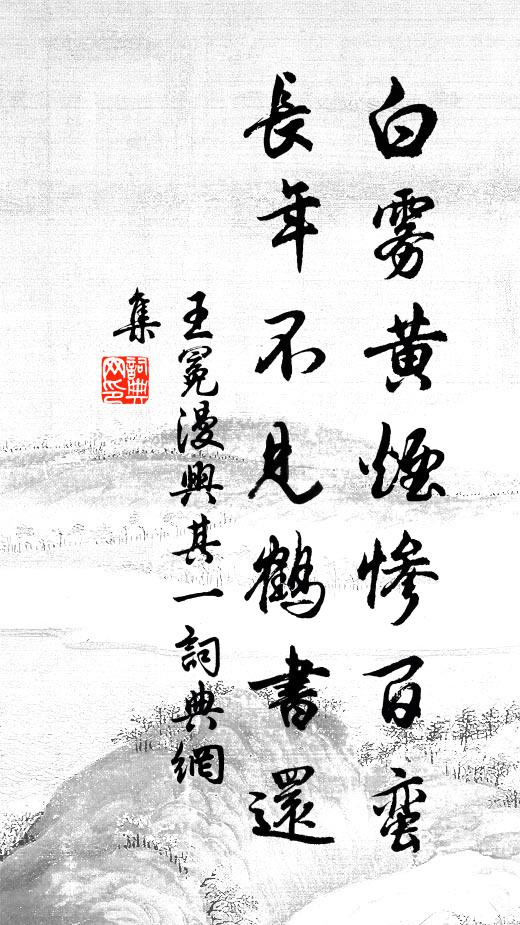 白雾黄煙慘百蠻
長年不見鶴書還
王冕漫興其一詞典網
集
詞典網印